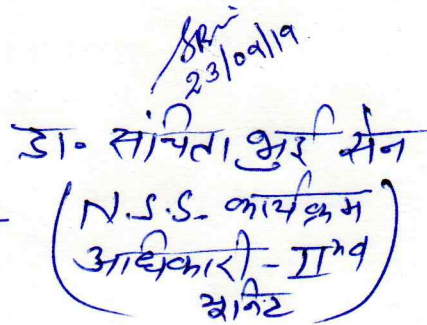 23/09/19
डा॰ संचिता भुई सेन
(N.S.S. कार्यक्रम
अधिकारी - IInd
यूनिट)